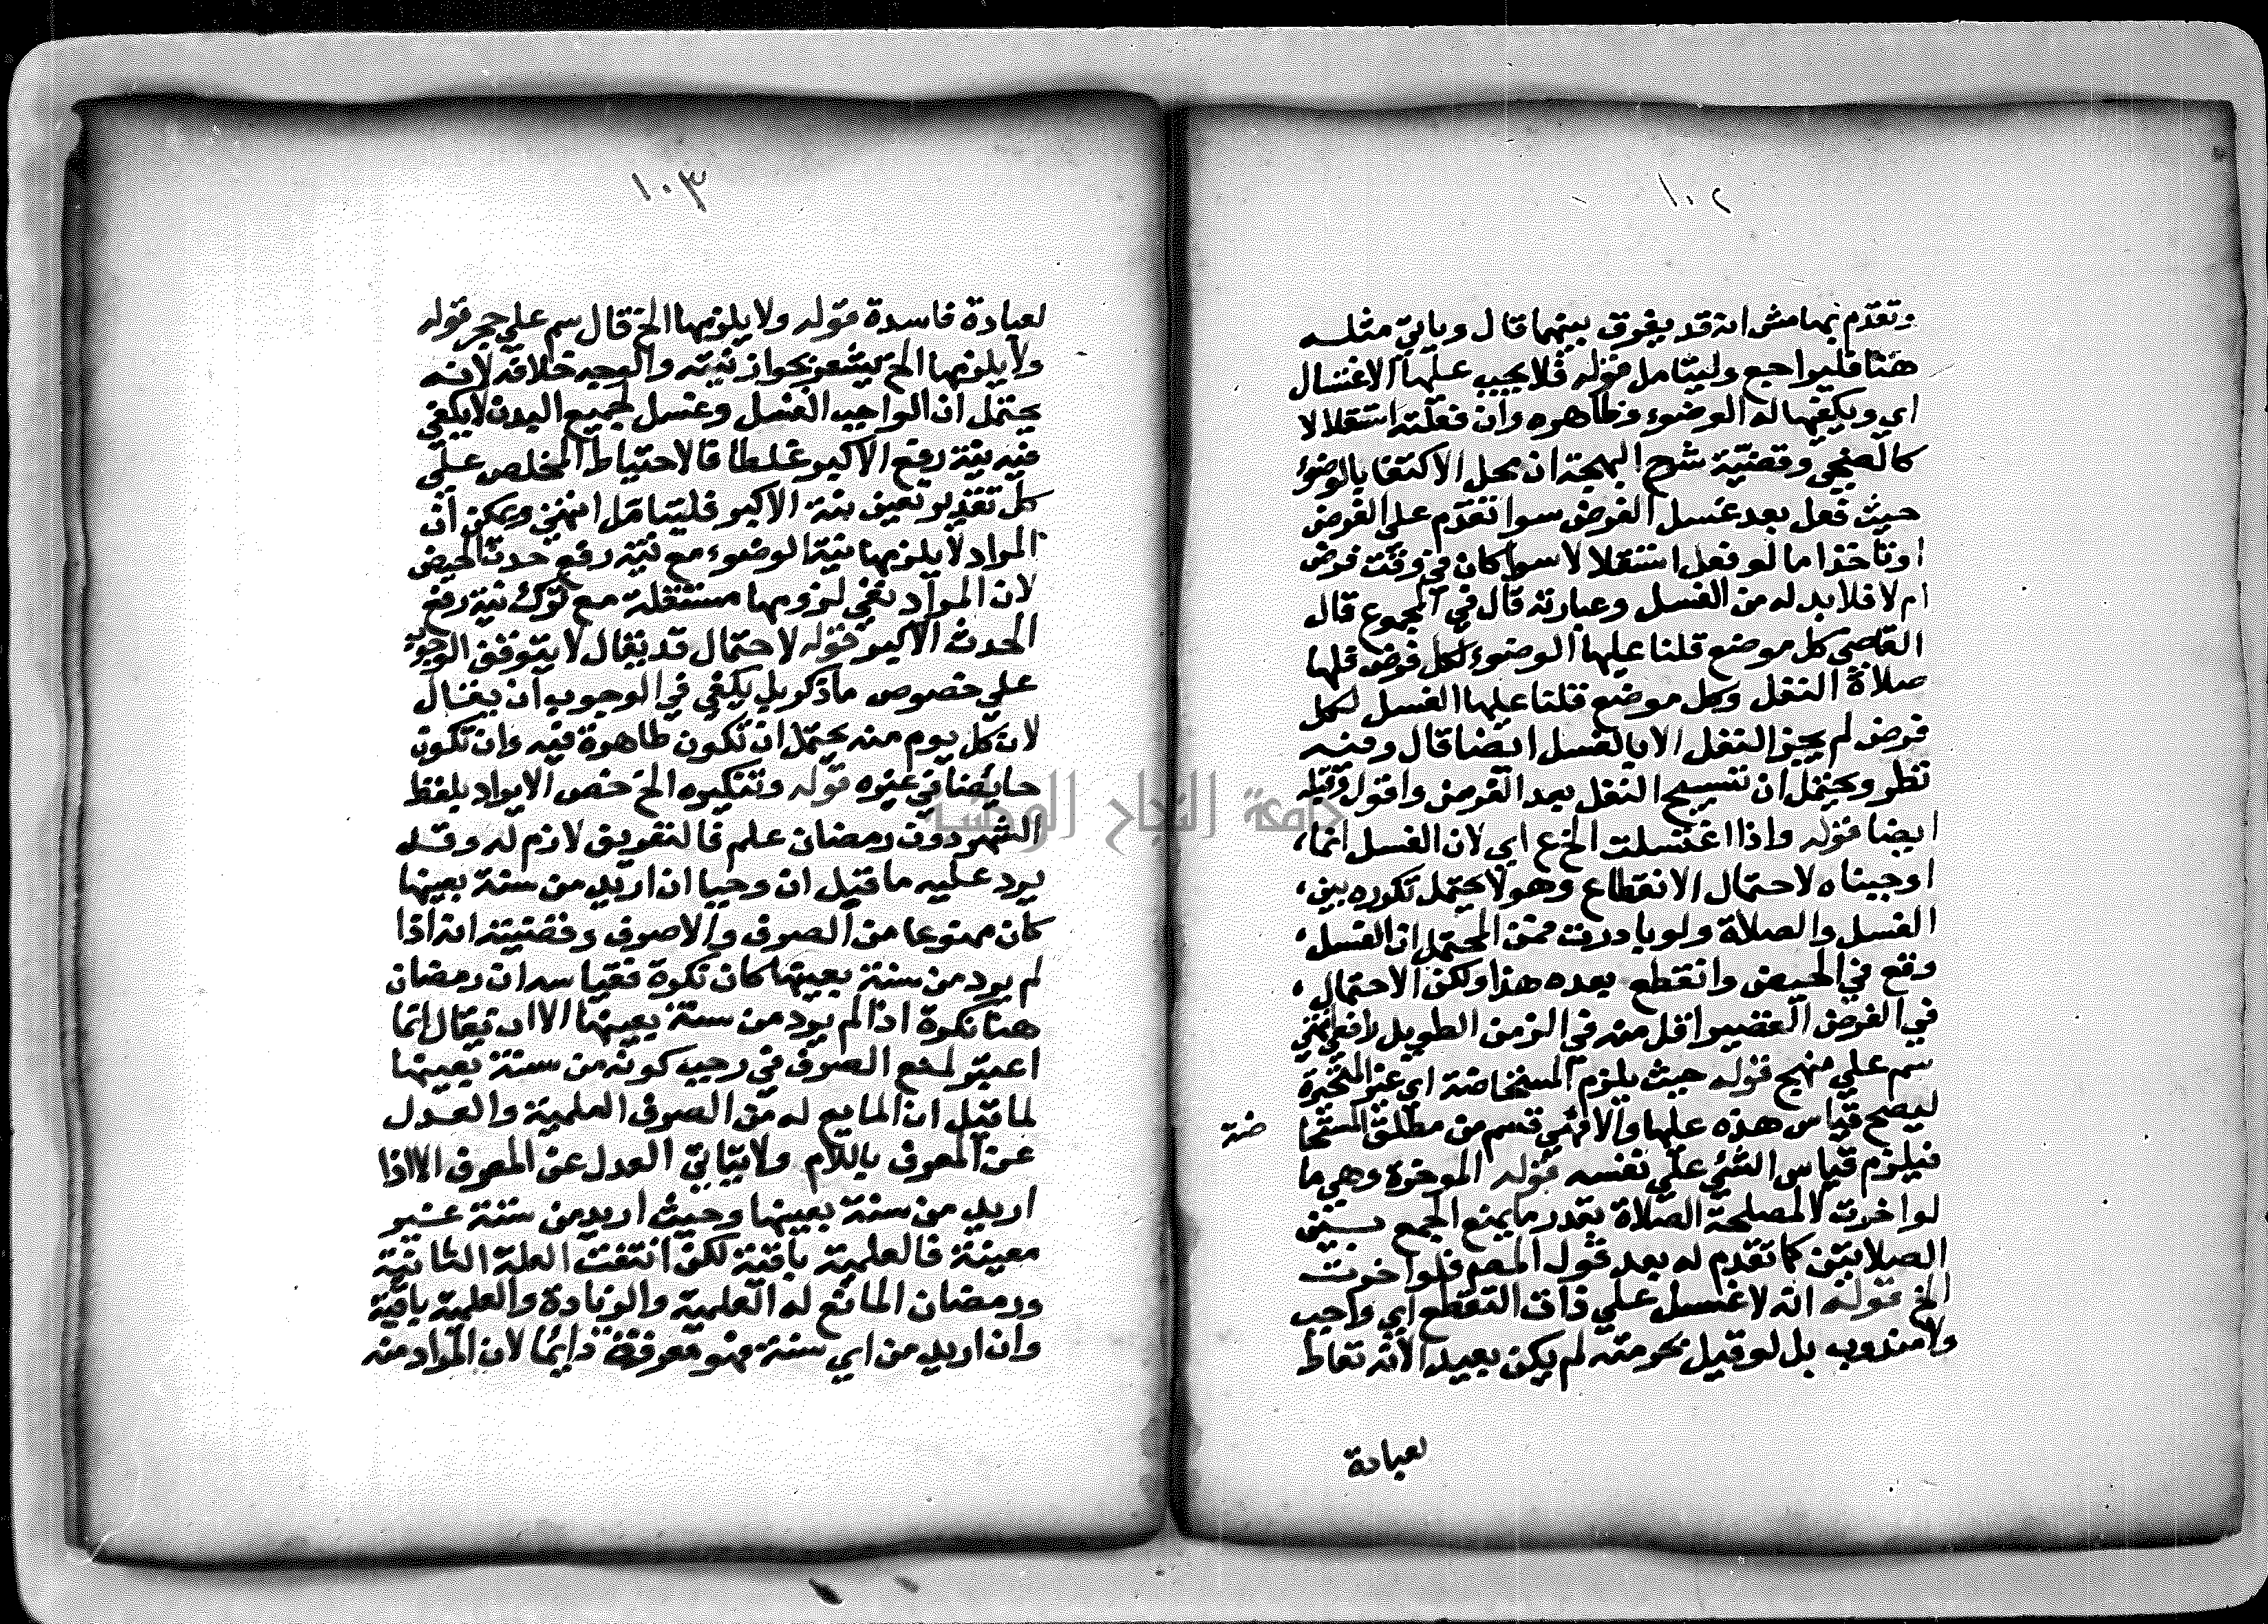 ١٠٢
وتقدم بهامش انه قد يفرق بينهما قال وياتي مثله
هنا فليراجع وليتامل قوله فلا يجب عليها الاغتسال
اي ويكفيها له الوضوء وظاهره وان فعلته استقلالا
كالضحى وقضية شرح البهجة ان محل الاكتفا بالوضوء
حيث فعل بعد غسل الفرض سوا تقدم على الفرض
او تاخر اما لو فعل استقلالا سوا كان في وقت فرض
ام لا فلا بد له من الغسل وعبارته قال في المجموع قال
القاضي كل موضع قلنا عليها الوضوء لكل فرض فلها
صلاة النفل وكل موضع قلنا عليها الغسل لكل
فرض لم يجز النفل الا بالغسل ايضا قال وفيه
نظر ويحتمل ان تستبيح النفل بعد الفرض واقول وقبله
ايضا قوله واذا اغتسلت الخ ع اي لان الغسل انما
اوجبناه لاحتمال الانقطاع وهو لا يحتمل تكرره بين
الغسل والصلاة ولو بادرت فمن المحتمل ان الغسل
وقع في الحيض وانقطع بعده هذا ولكن الاحتمال
في الفرض القصير اقل منه في الزمن الطويل
سم على منهج قوله حيث يلزم المستحاضة اي غير المتحيرة
ليصح قياس هذه عليها والا فهي قسم من مطلق المستحا
ضة
فيلزم قياس الشي على نفسه قوله المؤخرة وهي ما
لو اخرت لا لمصلحة الصلاة بقدر ما يمنع الجمع بين
الصلاتين كما تقدم له بعد قول المص فلو اخرت
الخ قوله انه لا غسل على ذات التقطع اي واجب
ولا مندوب بل لو قيل بحرمته لم يكن بعيدا لانه تعاط
لعبادة
١٠٣
لعبادة فاسدة قوله ولا يلزمها الخ قال سم على حجر قوله
ولا يلزمها الخ يشعر بجواز نيته والوجه خلافه لانه
يحتمل ان الواجب الغسل وغسل جميع البدن لا يكفي
فيه نية رفع الاكبر غلطا فالاحتياط المخلص على
كل تقدير تعين نية الاكبر فليتامل انتهى ويمكن ان
المراد لا يلزمها نية الوضوء مع نية رفع حدث الحيض
لان المراد نفي لزومها مستقلة مع ترك نية رفع
الحدث الاكبر قوله لاحتمال قد يقال لا يتوقف الوجوب
على خصوص ما ذكر بل يكفي في الوجوب ان يقال
لان كل يوم منه يحتمل ان تكون طاهرة فيه وان تكون
حايضا في غيره قوله وتنكيره الخ خص الايراد بلفظ
الشهر دون رمضان علم فالتفريق لازم له وقد
يرد عليه ما قيل ان رجبا ان اريد من سنة بعينها
كان ممنوعا من الصرف والا صرف وقضيته انه اذا
لم يرد من سنة بعينها كان نكرة فقياسه ان رمضان
هنا نكرة اذا لم يرد من سنة بعينها الا ان يقال انما
اعتبر لمنع الصرف في رجب كونه من سنة بعينها
لما قيل ان المانع له من الصرف العلمية والعدل
عن المعرف باللام ولا يتاتى العدل عن المعرف الا اذا
اريد من سنة بعينها وحيث اريد من سنة غير
معينة فالعلمية باقية لكن انتفت العلة الثانية
ورمضان المانع له العلمية والزيادة والعلمية باقية
وان اريد من اي سنة فهو معرفة دايما لان المراد منه
جامعة النجاح الوطنية